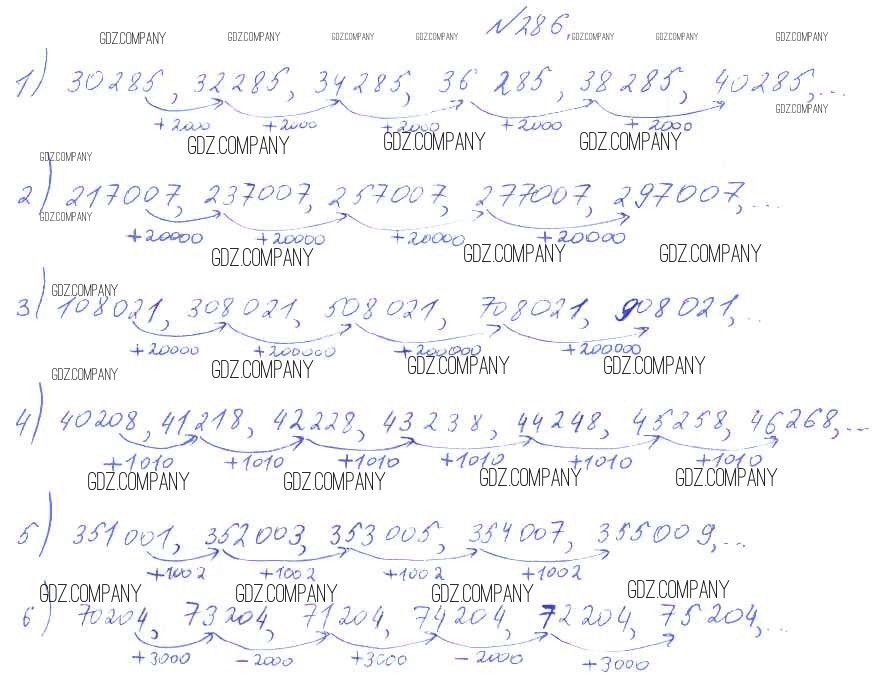 №286.
GDZ.COMPANY GDZ.COMPANY GDZ.COMPANY GDZ.COMPANY GDZ.COMPANY GDZ.COMPANY GDZ.COMPANY
1) 30285, 32285, 34285, 36 285, 38 285, 40285,...
GDZ.COMPANY
+2000 +2000 +2000 +2000 +2000
GDZ.COMPANY GDZ.COMPANY GDZ.COMPANY
GDZ.COMPANY
2) 217007, 237007, 257007, 277007, 297007,...
GDZ.COMPANY
+20000 +20000 +20000 +20000
GDZ.COMPANY GDZ.COMPANY GDZ.COMPANY
GDZ.COMPANY
3) 108021, 308021, 508021, 708021, 908021,...
+20000 +200000 +200000 +200000
GDZ.COMPANY GDZ.COMPANY GDZ.COMPANY GDZ.COMPANY
4) 40208, 41218, 42228, 43238, 44248, 45258, 46268,...
+1010 +1010 +1010 +1010 +1010 +1010
GDZ.COMPANY GDZ.COMPANY GDZ.COMPANY GDZ.COMPANY
5) 351001, 352003, 353005, 354007, 355009,...
+1002 +1002 +1002 +1002
GDZ.COMPANY GDZ.COMPANY GDZ.COMPANY GDZ.COMPANY
6) 70204, 73204, 71204, 74204, 72204, 75204,...
+3000 -2000 +3000 -2000 +3000